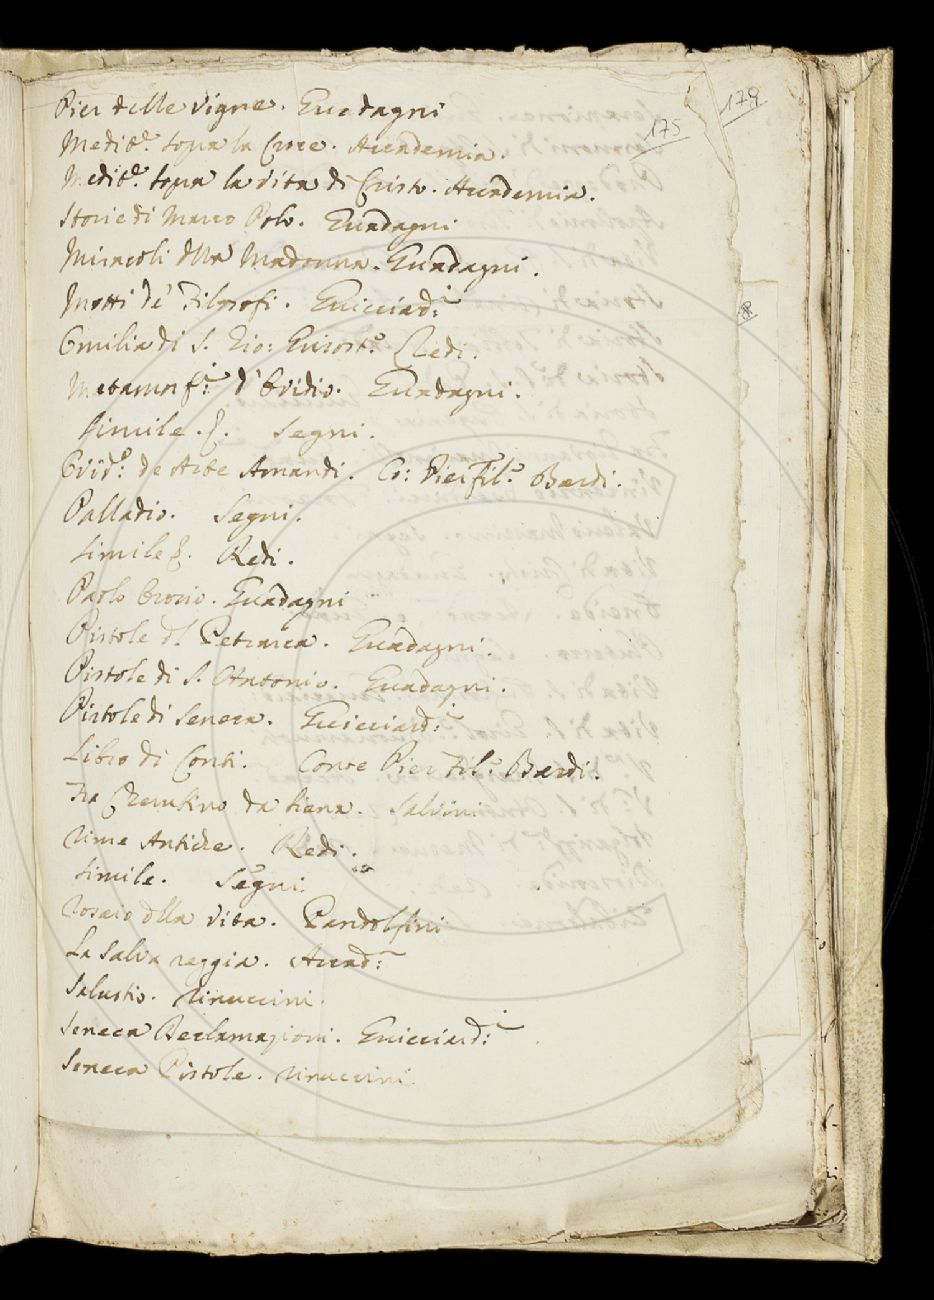 179
175
Pier delle Vigne. Guadagni
Medit.e sopra la Croce. Accademia.
Medit.e sopra la vita di Cristo. Accademia.
Storie di Marco Polo. Guadagni
Miracoli dlla Madonna. Guadagni.
Motti de' Filosofi. Guicciard:i
Omilia di S. Gio: Grisost.o Redi.
Metamorf:i d'Ovidio. Guadagni.
Simile. Segni.
Ovid:o de Arte Amandi. Co: Pier Fil.o Bardi.
Palladio. Segni.
Simile. Redi.
Paolo Orosio. Guadagni
Pistole dl Petrarca. Guadagni.
Pistole di S. Antonio. Guadagni.
Pistole di Seneca. Guicciard:i
Libro di Conti. Conte Pier Fil.o Bardi.
Fra da Siena. Salvini
Rime Antiche. Redi.
Simile. Segni.
Rosaio dlla Vita. Pandolfini
La Salva reggia. Accad:a
Salustio. Rinuccini.
Seneca Declamazioni. Guicciard:i
Seneca Pistole. Rinuccini